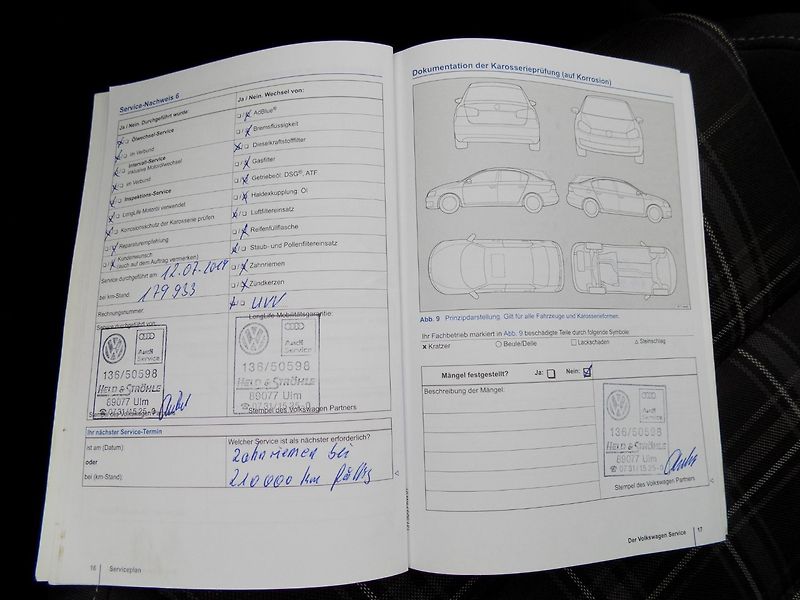 Service-Nachweis 6
Ja / Nein. Durchgeführt wurde:
Ölwechsel-Service
im Verbund
Intervall-Service
inklusive Motorölwechsel
im Verbund
Inspektions-Service
LongLife Motoröl verwendet
Korrosionsschutz der Karosserie prüfen
Reparaturempfehlung
Kundenwunsch
(auch auf dem Auftrag vermerken)
Service durchgeführt am: 12.07.2014
bei km-Stand: 179 933
Rechnungsnummer:
Service durchgeführt von:
Audi
Service
136/50598
HELD & STRÖHLE
89077 Ulm
☎ 0731/15 25-0
Stempel des Volkswagen Partners
Ja / Nein. Wechsel von:
AdBlue®
Bremsflüssigkeit
Dieselkraftstofffilter
Gasfilter
Getriebeöl: DSG®, ATF
Haldexkupplung: Öl
Luftfiltereinsatz
Reifenfüllflasche
Staub- und Pollenfiltereinsatz
Zahnriemen
Zündkerzen
LongLife Mobilitätsgarantie:
Audi
Service
136/50598
HELD & STRÖHLE
89077 Ulm
☎ 0731/15 25-0
Stempel des Volkswagen Partners
Ihr nächster Service-Termin
ist am (Datum):
oder
bei (km-Stand):
Welcher Service ist als nächster erforderlich?
Zahnriemen bei
210000 km fällig
16 Serviceplan
Dokumentation der Karosserieprüfung (auf Korrosion)
Abb. 9 Prinzipdarstellung. Gilt für alle Fahrzeuge und Karosserieformen.
Ihr Fachbetrieb markiert in Abb. 9 beschädigte Teile durch folgende Symbole:
x Kratzer ○ Beule/Delle □ Lackschaden △ Steinschlag
Mängel festgestellt? Ja: Nein:
Beschreibung der Mängel:
Audi
Service
136/50598
HELD & STRÖHLE
89077 Ulm
☎ 0731/15 25-0
Stempel des Volkswagen Partners
Der Volkswagen Service 17